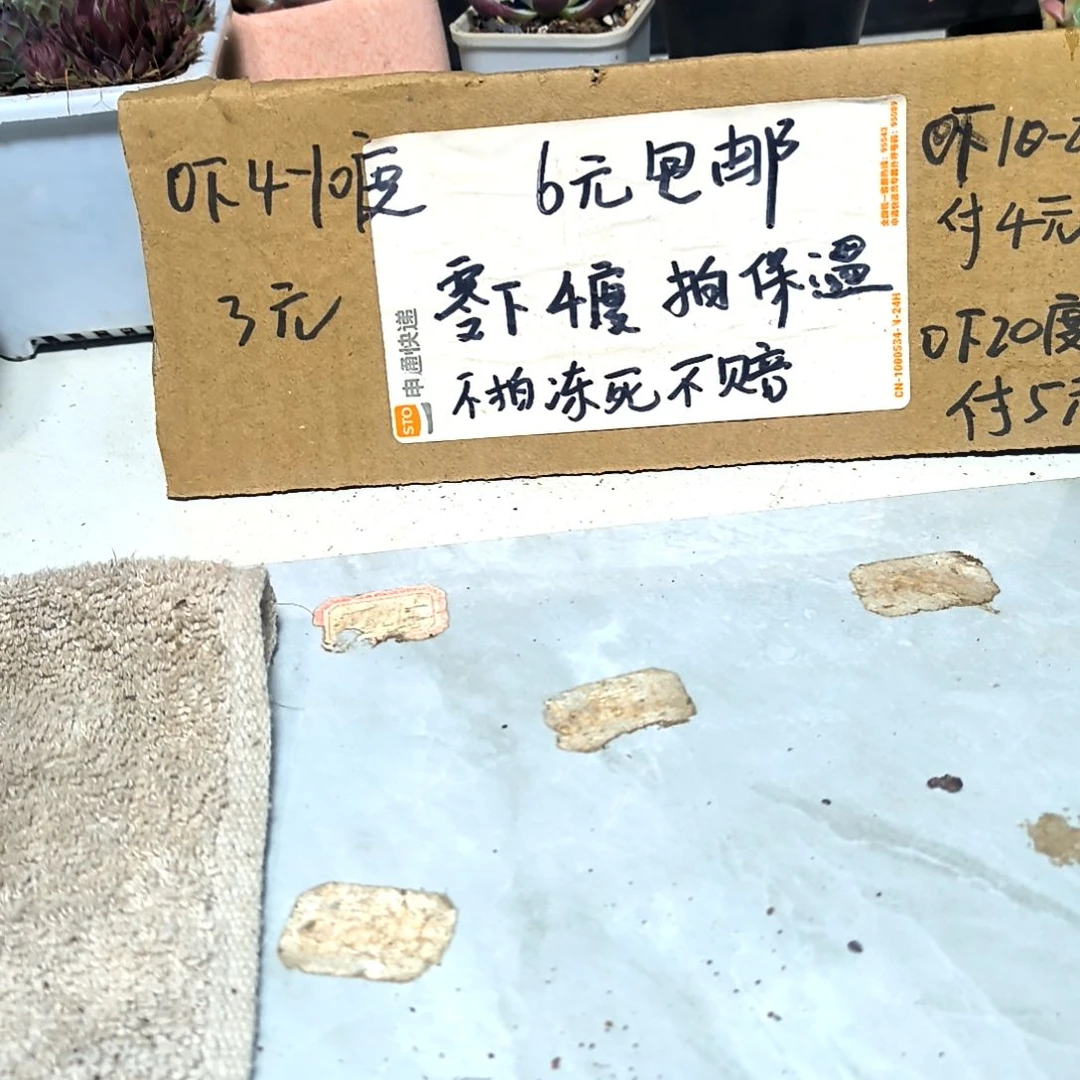 0下4-10度
3元
6元包邮
零下4度 拍保温
不拍冻死不赔
申通快递
STO
CN-1000534-V-24H
0下10-2
付4元
0下20度
付5元